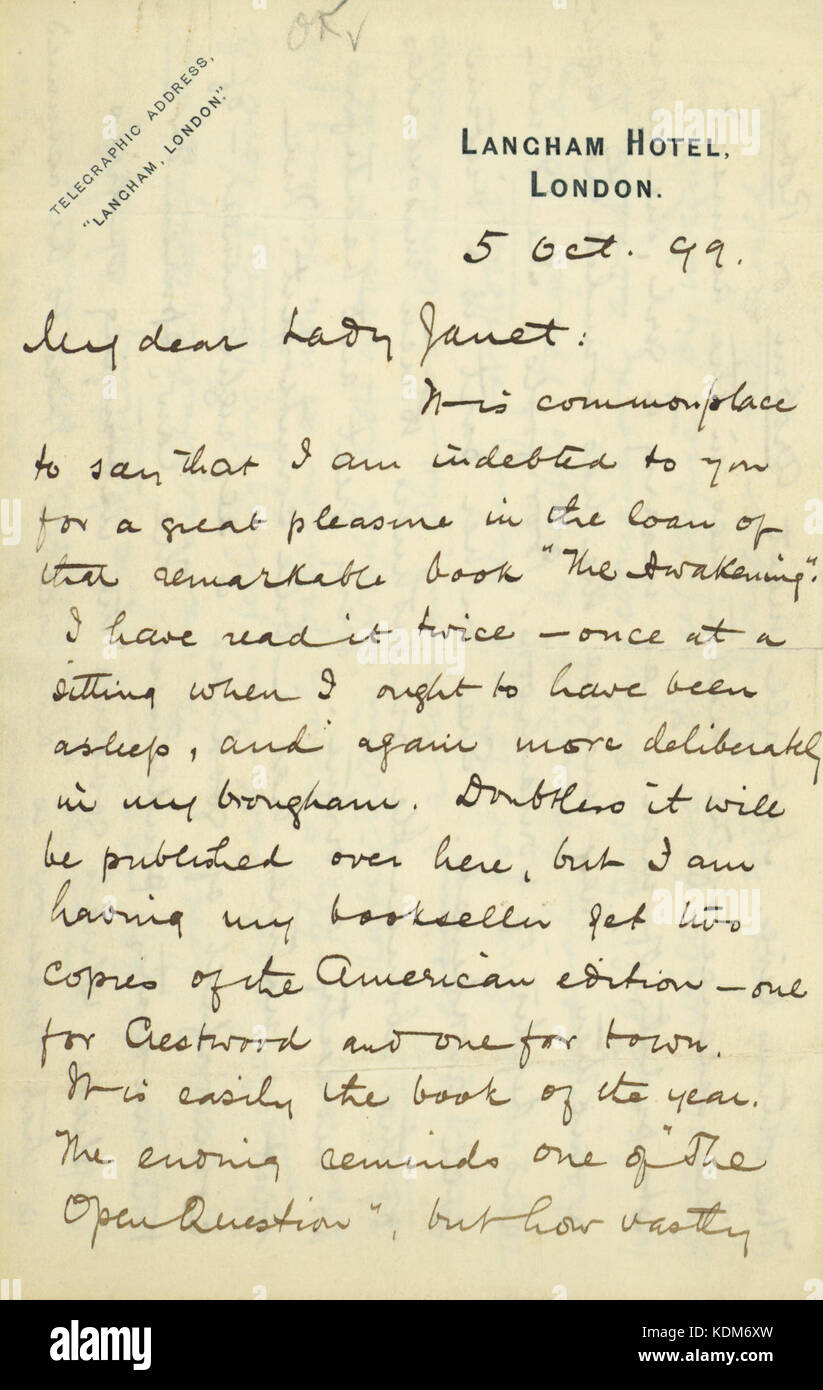 OK✓
TELEGRAPHIC ADDRESS,
"LANGHAM, LONDON."
LANGHAM HOTEL,
LONDON.
5 Oct. 99.
My dear Lady Janet:
It is commonplace
to say that I am indebted to you
for a great pleasure in the loan of
that remarkable book "The Awakening".
I have read it twice — once at a
sitting when I ought to have been
asleep, and again more deliberately
in my brougham. Doubtless it will
be published over here, but I am
having my bookseller get two
copies of the American edition — one
for Crestwood and one for town.
It is easily the book of the year.
The ending reminds one of "The
Open Question", but how vastly
alamy stock photo
KDM6XW